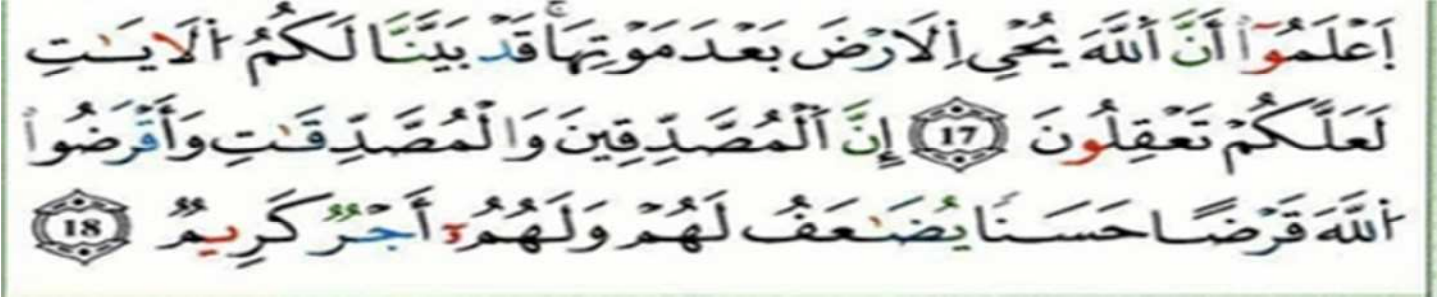 اِ۪عْلَمُوٓاْ أَنَّ اَ۬للَّهَ يُحْيِ اِ۬لَارْضَ بَعْدَ مَوْتِهَاۖ قَدْ بَيَّنَّا لَكُمُ اُ۬لَايَٰتِ
لَعَلَّكُمْ تَعْقِلُونَ 17 إِنَّ اَ۬لْمُصَّدِّقِينَ وَالْمُصَّدِّقَٰتِ وَأَقْرَضُواْ
اُ۬للَّهَ قَرْضًا حَسَنٗا يُضَٰعَفُ لَهُمْ وَلَهُمُۥٓ أَجْرٞ كَرِيمٞ 18